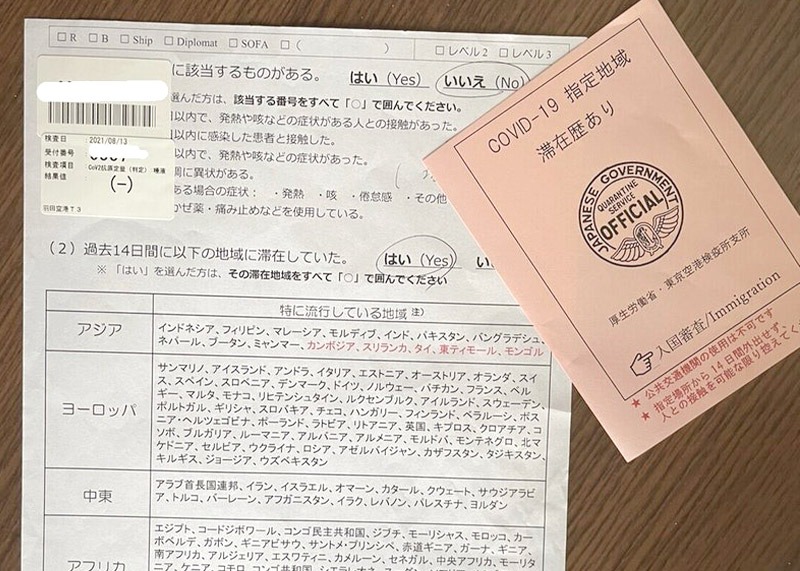 □ R □ B □ Ship □ Diplomat □ SOFA □ ( ) □ レベル2 □ レベル3
に該当するものがある。 はい (Yes) いいえ (No)
選んだ方は、該当する番号をすべて「○」で囲んでください。
以内で、発熱や咳などの症状がある人との接触があった。
以内に感染した患者と接触した。
以内で、発熱や咳などの症状があった。
調に異状がある。
ある場合の症状: ・発熱 ・咳 ・倦怠感 ・その他
かぜ薬・痛み止めなどを使用している。
検査日 2021/08/13
受付番号
検査項目 CoV2抗原定量(特定) 唾液
結果値 (-)
羽田空港T3
(2) 過去14日間に以下の地域に滞在していた。 はい (Yes) い
※ 「はい」を選んだ方は、その滞在地域をすべて「○」で囲んでください
特に流行している地域 注)
アジア
インドネシア、フィリピン、マレーシア、モルディブ、インド、パキスタン、バングラデシュ、
ネパール、ブータン、ミャンマー、カンボジア、スリランカ、タイ、東ティモール、モンゴル
ヨーロッパ
サンマリノ、アイスランド、アンドラ、イタリア、エストニア、オーストリア、オランダ、スイ
ス、スペイン、スロベニア、デンマーク、ドイツ、ノルウェー、バチカン、フランス、ベル
ギー、マルタ、モナコ、リヒテンシュタイン、ルクセンブルク、アイルランド、スウェーデン、
ポルトガル、ギリシャ、スロバキア、チェコ、ハンガリー、フィンランド、ベラルーシ、ボス
ニア・ヘルツェゴビナ、ポーランド、ラトビア、リトアニア、英国、キプロス、クロアチア、コ
ソボ、ブルガリア、ルーマニア、アルバニア、アルメニア、モルドバ、モンテネグロ、北マ
ケドニア、セルビア、ウクライナ、ロシア、アゼルバイジャン、カザフスタン、タジキスタン、
キルギス、ジョージア、ウズベキスタン
中東
アラブ首長国連邦、イラン、イスラエル、オマーン、カタール、クウェート、サウジアラビ
ア、トルコ、バーレーン、アフガニスタン、イラク、レバノン、パレスチナ、ヨルダン
アフリカ
エジプト、コードジボワール、コンゴ民主共和国、ジブチ、モーリシャス、モロッコ、カー
ボベルデ、ガボン、ギニアビサウ、サントメ・プリンシペ、赤道ギニア、ガーナ、ギニア、
南アフリカ、アルジェリア、エスワティニ、カメルーン、セネガル、中央アフリカ、モーリタ
ニア、ケニア、コモロ、コンゴ共和国、シエラレオネ、スーダン
COVID-19 指定地域
滞在歴あり
JAPANESE GOVERNMENT
QUARANTINE
SERVICE
OFFICIAL
厚生労働省・東京空港検疫所支所
入国審査/Immigration
★ 公共交通機関の使用は不可です
★ 指定場所から14日間外出せず、
人との接触を可能な限り控えてく